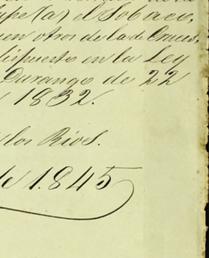 (a) el Tobaco,
en otros de la de Cruces,
dispuesto en la Ley
Durango de 22
1832.
los Rios.
de 1845